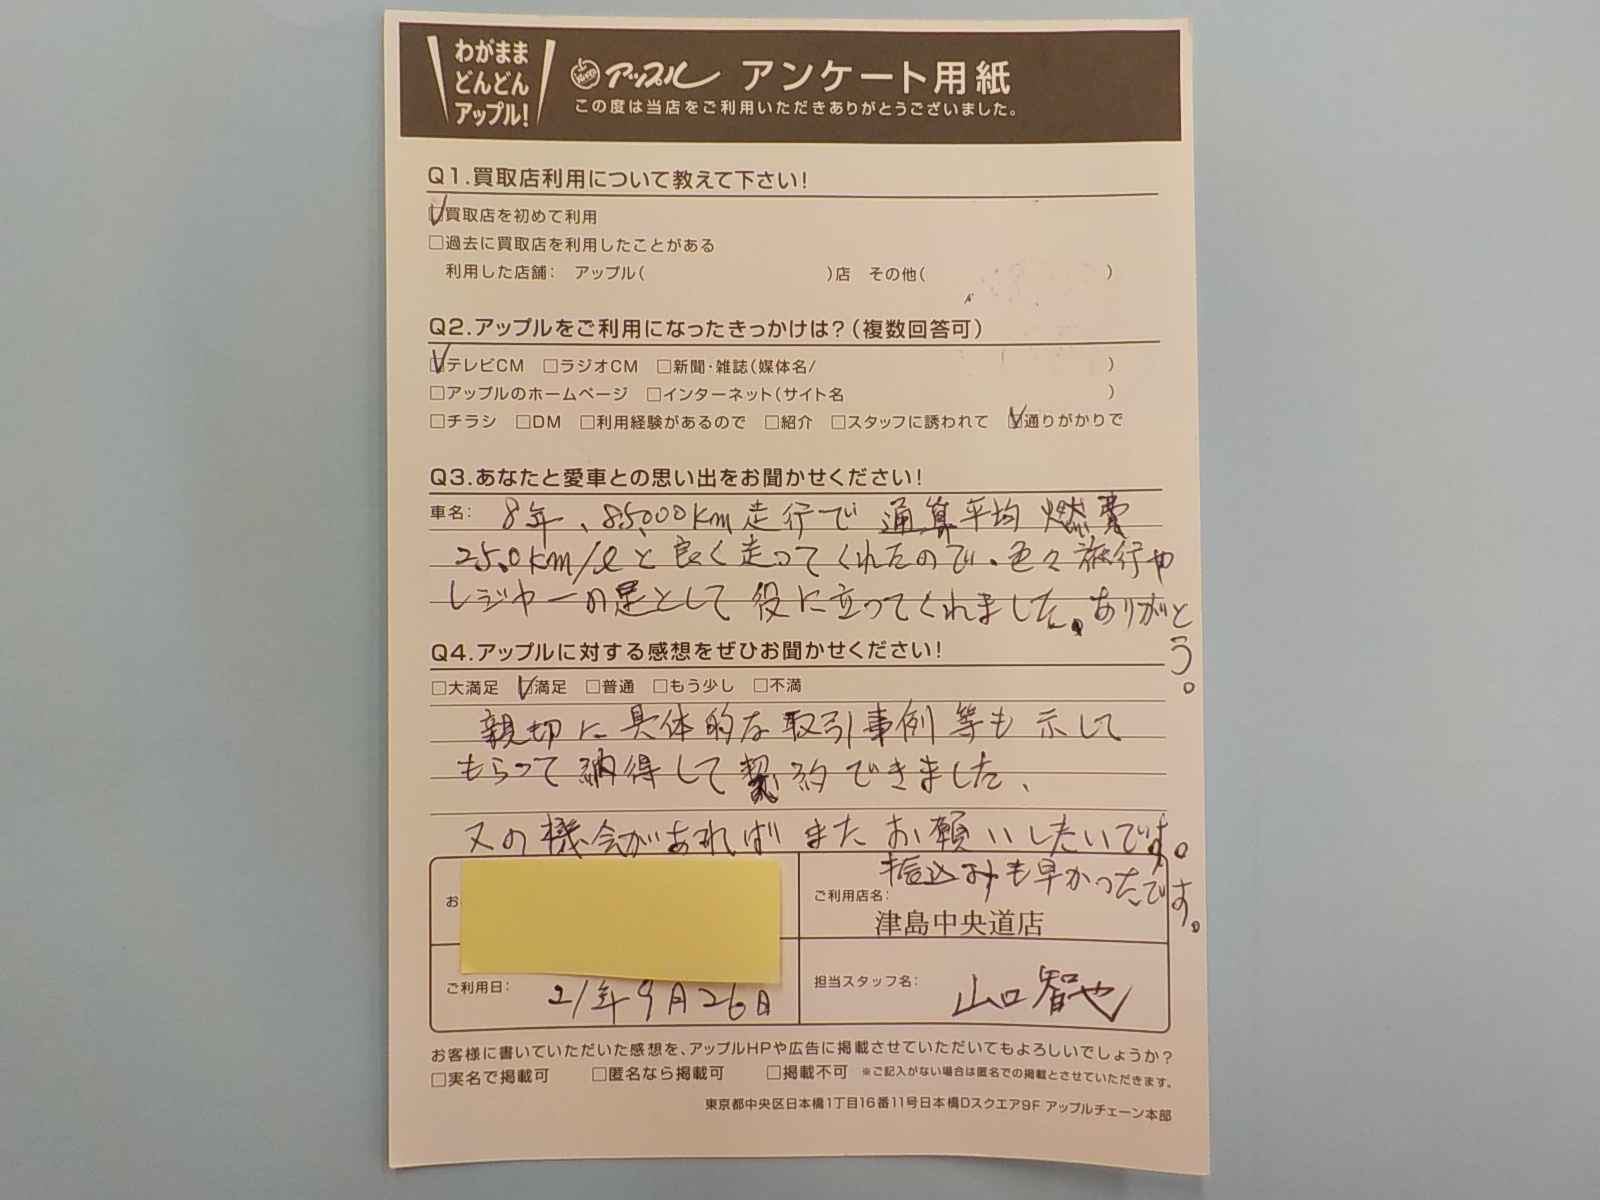 わがまま
どんどん
アップル!
アップル アンケート用紙
この度は当店をご利用いただきありがとうございました。
Q1.買取店利用について教えて下さい!
☑買取店を初めて利用
□過去に買取店を利用したことがある
利用した店舗: アップル( )店 その他( )
Q2.アップルをご利用になったきっかけは?(複数回答可)
☑テレビCM □ラジオCM □新聞・雑誌(媒体名/ )
□アップルのホームページ □インターネット(サイト名 )
□チラシ □DM □利用経験があるので □紹介 □スタッフに誘われて ☑通りがかりで
Q3.あなたと愛車との思い出をお聞かせください!
車名: 8年、85,000km走行で 通算平均 燃費
25.0km/ℓと良く走ってくれたので、色々旅行や
レジャーの足として役に立ってくれました。ありがと
う。
Q4.アップルに対する感想をぜひお聞かせください!
□大満足 ☑満足 □普通 □もう少し □不満
親切に具体的な取引事例等も示して
もらって納得して契約できました、
又の機会があればまたお願いしたいです。
振込みも早かったです。
お
ご利用店名:
津島中央道店
ご利用日: 21年9月26日
担当スタッフ名: 山口智也
お客様に書いていただいた感想を、アップルHPや広告に掲載させていただいてもよろしいでしょうか?
□実名で掲載可 □匿名なら掲載可 □掲載不可 ※ご記入がない場合は匿名での掲載とさせていただきます。
東京都中央区日本橋1丁目16番11号日本橋Dスクエア9F アップルチェーン本部